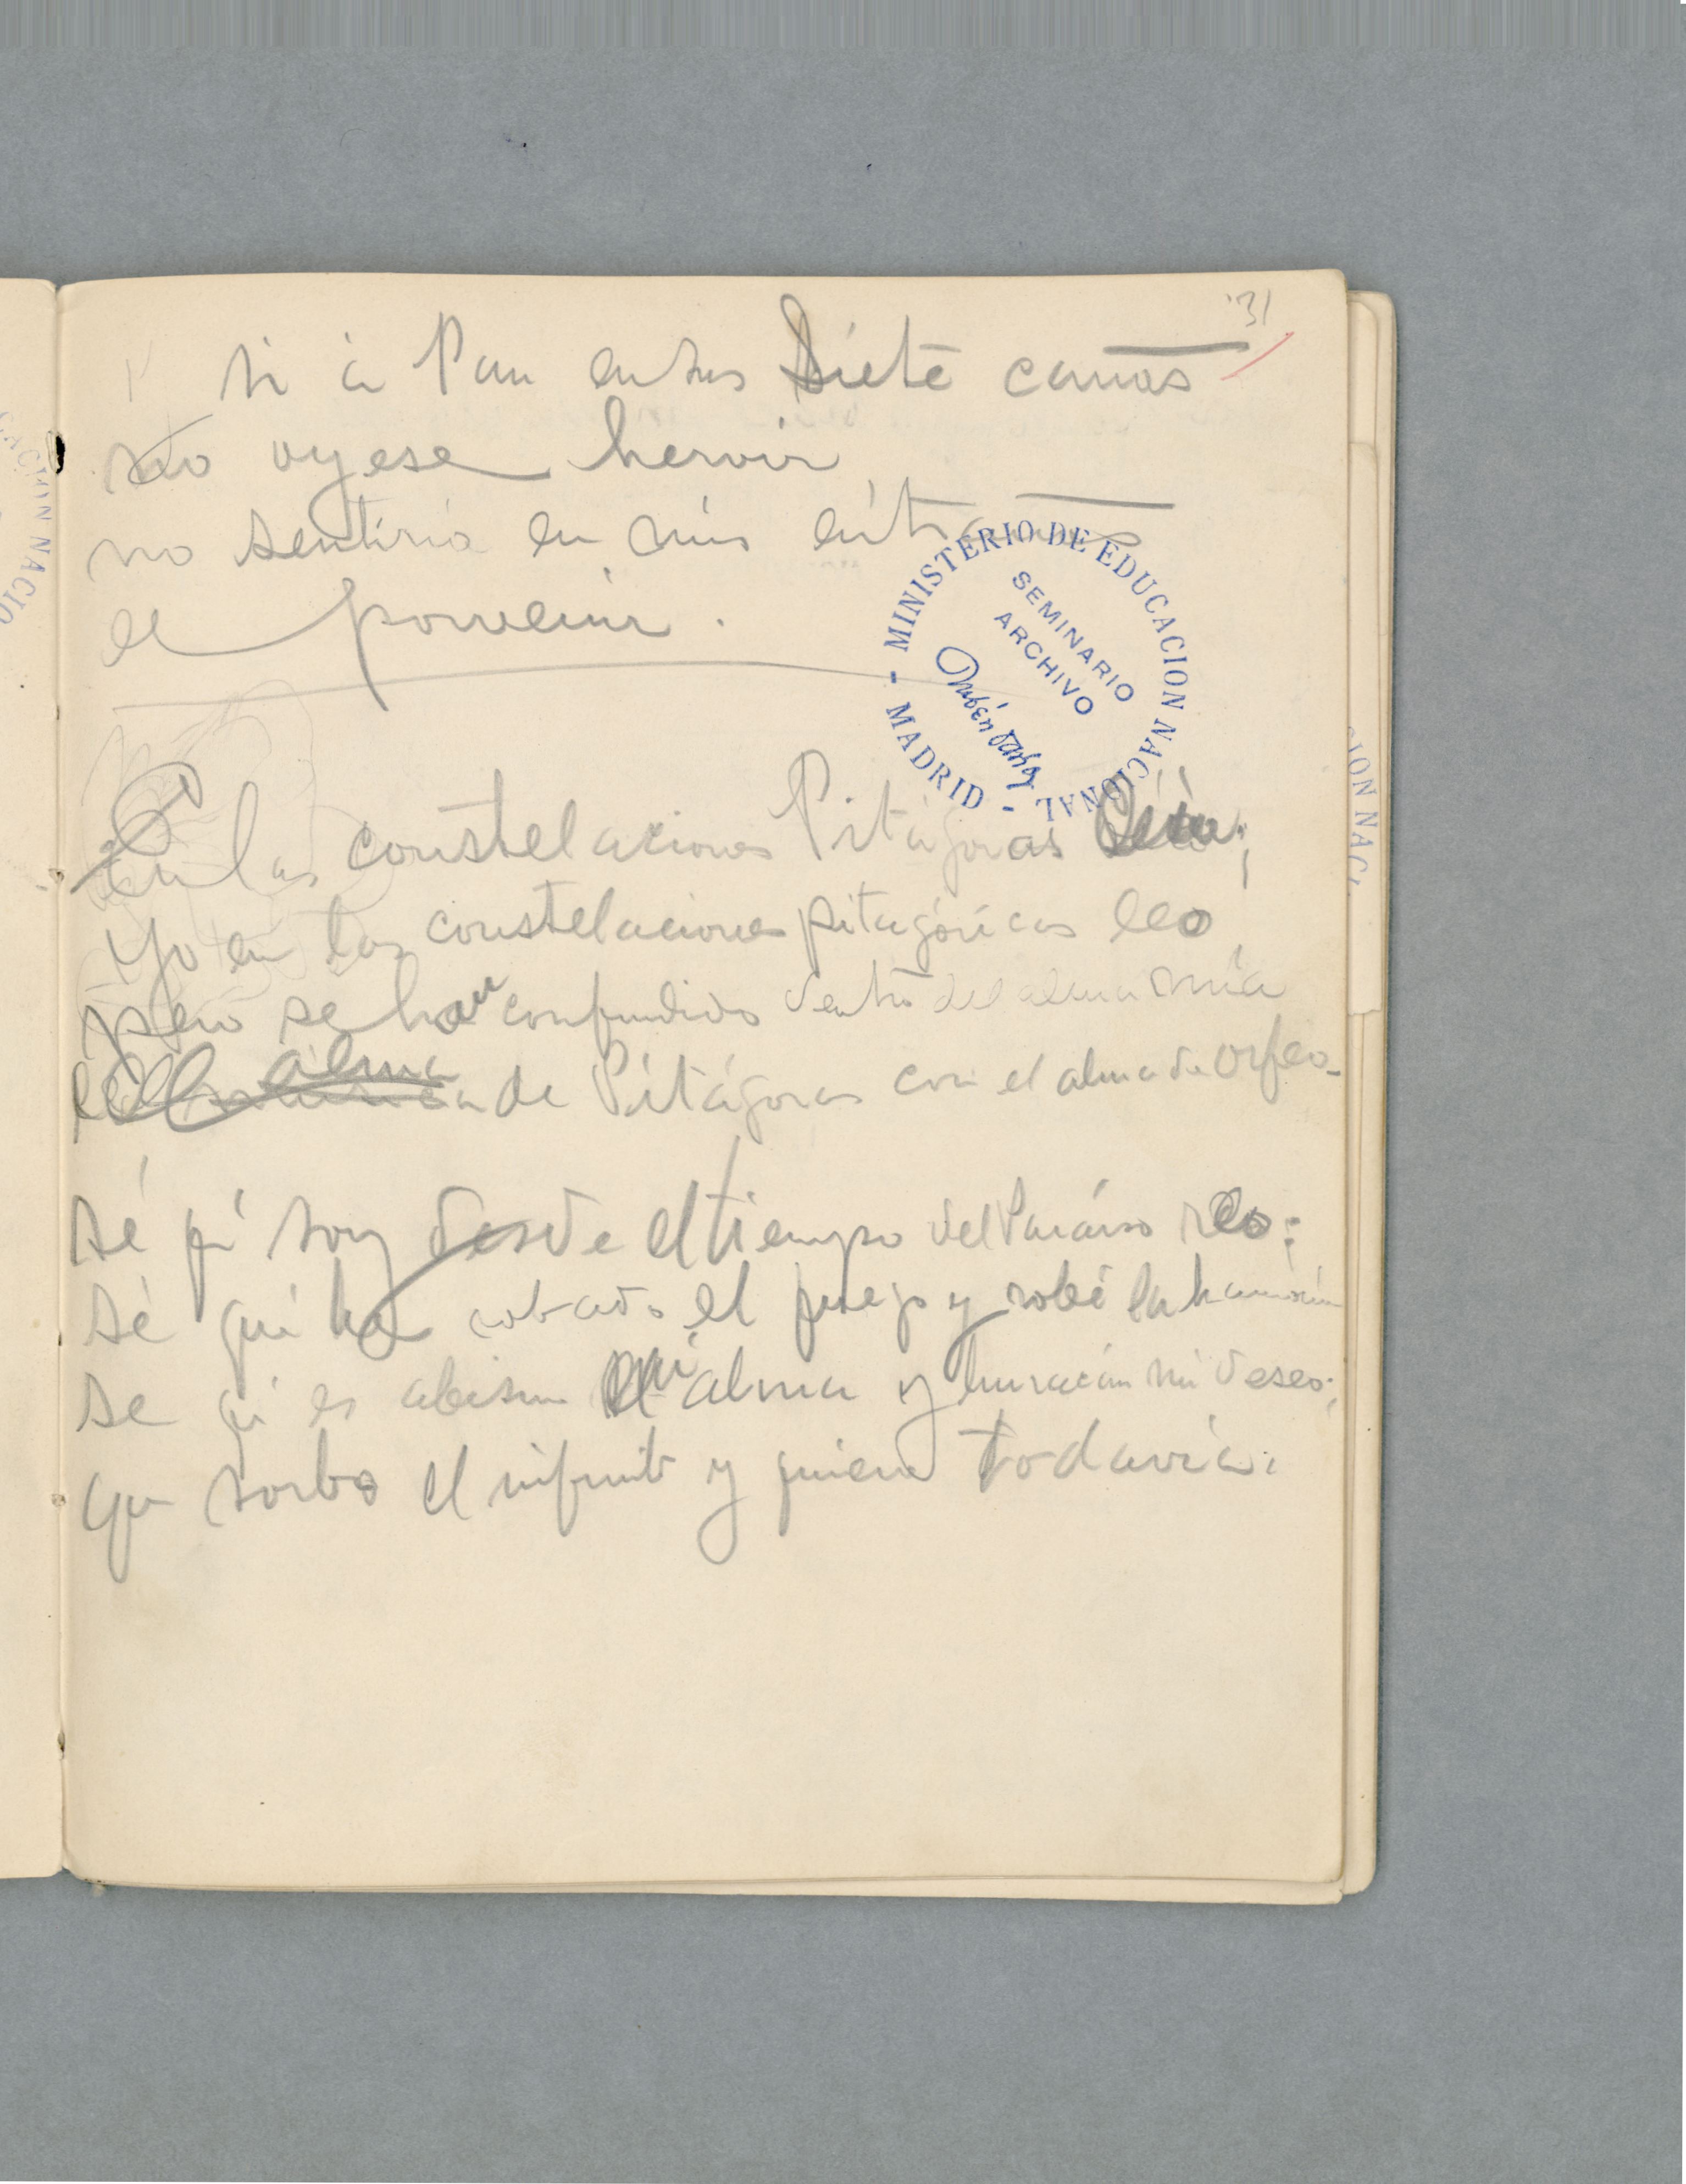 31
Si á Pan en sus siete cañas
no oyese hervir
no sentiria en mis entrañas
el porvenir.
MINISTERIO DE EDUCACION NACIONAL - MADRID -
SEMINARIO
ARCHIVO
Rubén Darío
En las constelaciones Pitágoras leía;
Yo en las constelaciones pitagóricas leo
pero se han confundido dentro del alma mía
el alma de Pitágoras con el alma de Orfeo-
Sé qe soy desde el tiempo del Paraíso reo:
Sé que he robado el fuego y robé la harmonía
Se qe es abismo mi alma y huracán mi deseo;
Que sorbo el infinito y quiero todavía:
CACION NACIO
CION NAC